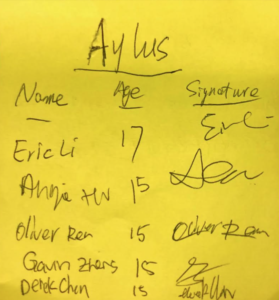 Aylus
Name Age Signature
Eric Li 17
Angie Hu 15
Oliver Ren 15 Oliver Ren
Gavin Zhang 15
Derek Chen 15